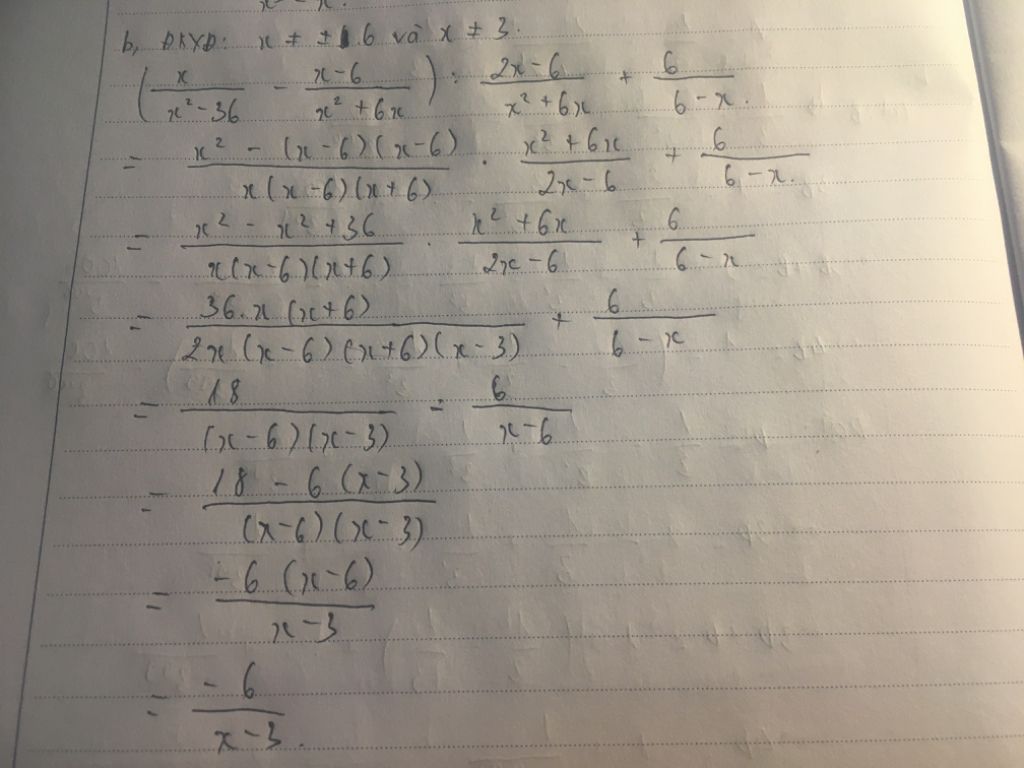 b, ĐKXĐ: x ≠ ± 6 và x ≠ 3.
(x/(x² - 36) - (x-6)/(x² + 6x)) : (2x-6)/(x² + 6x) + 6/(6-x).
= (x² - (x-6)(x-6))/(x(x-6)(x+6)) . (x² + 6x)/(2x-6) + 6/(6-x).
= (x² - x² + 36)/(x(x-6)(x+6)) . (x² + 6x)/(2x-6) + 6/(6-x)
= (36.x(x+6))/(2x(x-6)(x+6)(x-3)) + 6/(6-x)
= 18/((x-6)(x-3)) - 6/(x-6)
= (18 - 6(x-3))/((x-6)(x-3))
= (-6(x-6))/(x-3)
= (-6)/(x-3).